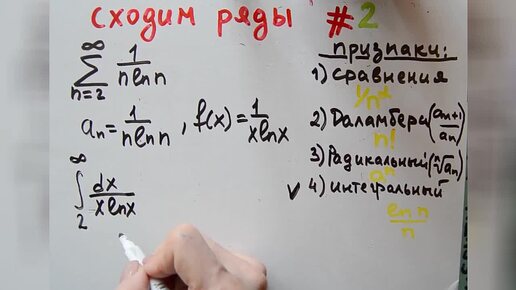 сходим ряды #2
∞
∑ 1/(n ln n)
n=2
aₙ = 1/(n ln n), f(x) = 1/(x ln x)
∞
∫ dx/(x ln x)
2
признаки:
1) сравнения
1/nᵅ
2) Даламбера (aₙ₊₁/aₙ)
n!
3) Радикальный (ⁿ√aₙ)
aⁿ
✓ 4) интегральный
ln n/n